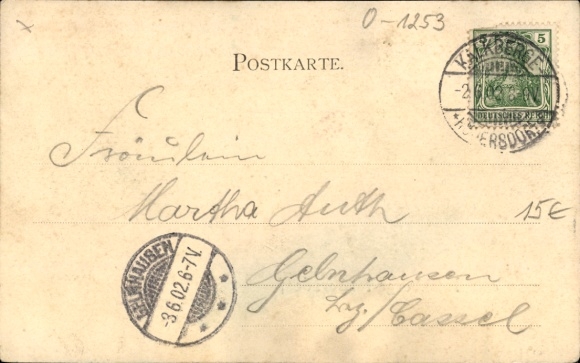 x
O-1253
POSTKARTE.
5
DEUTSCHES REICH
KALKBERGE
-2.6.02. -V.
Fräulein
Martha Auth
15€
GELNHAUSEN
-3.6.02.6-7V.
Gelnhausen
bz/Cassel